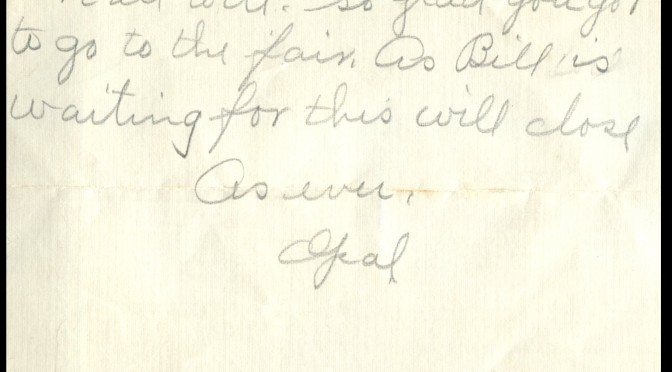 so glad you got
to go to the fair. As Bill is
waiting for this will close
As ever,
Opal